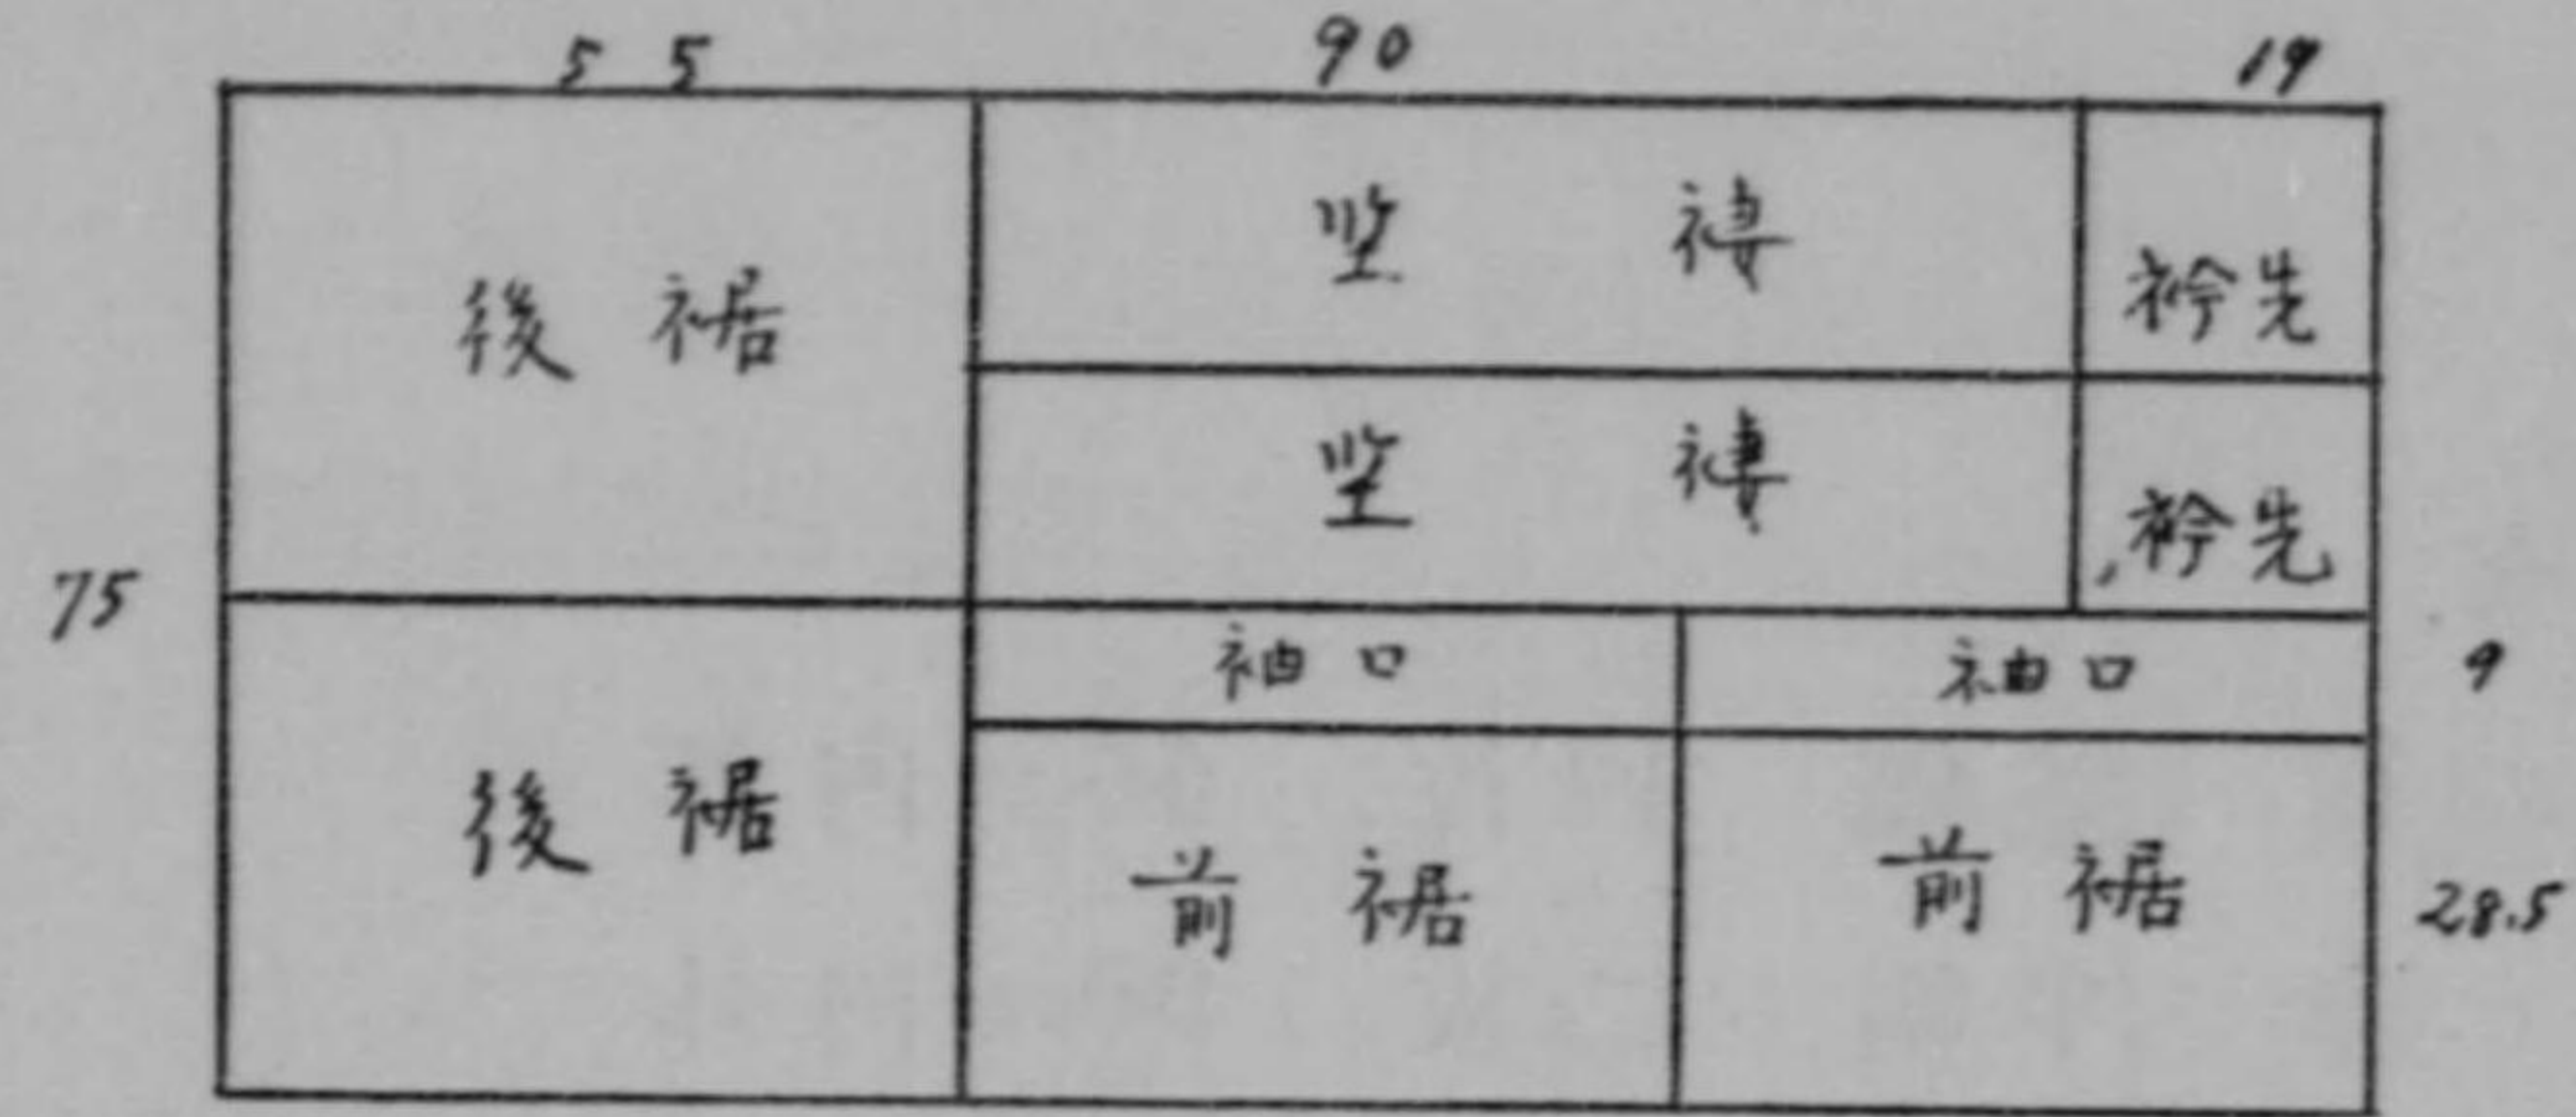 55 90 19
後裾 竪褄 衿先
竪褄 衿先
75
袖口 袖口 9
後裾 前裾 前裾 28.5